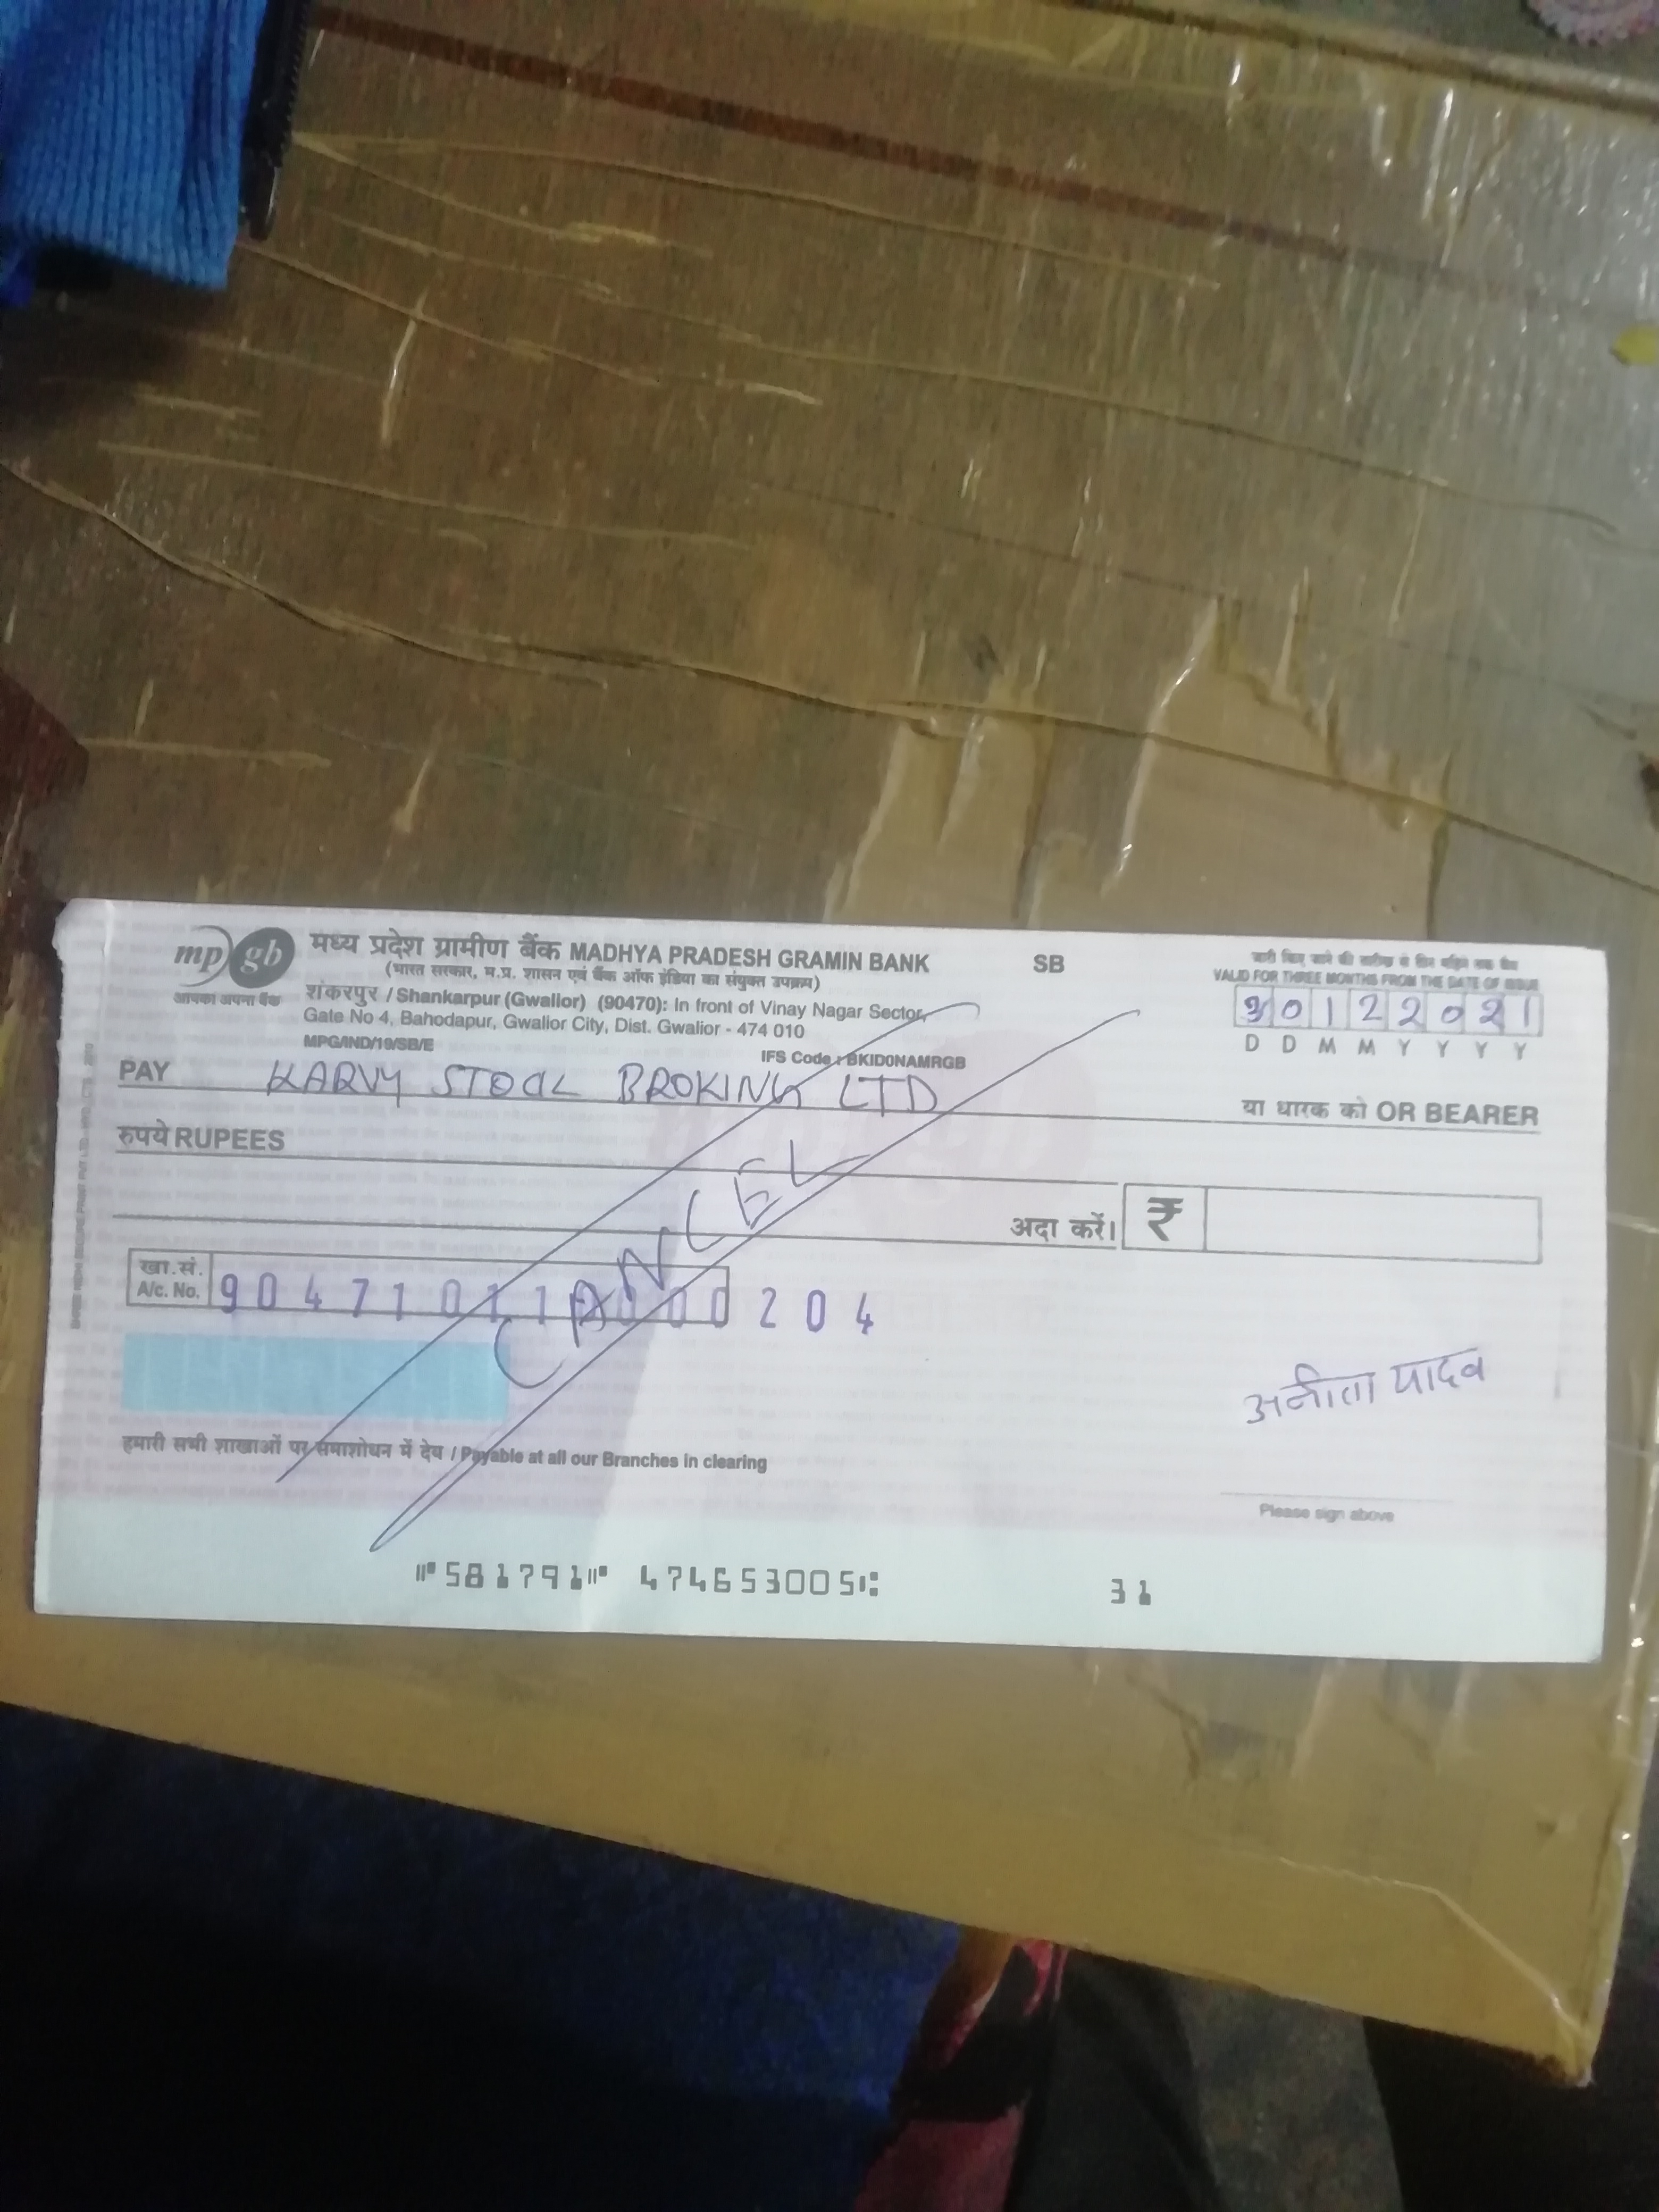 mp gb मध्य प्रदेश ग्रामीण बैंक MADHYA PRADESH GRAMIN BANK SB
(भारत सरकार, म.प्र. शासन एवं बैंक ऑफ इंडिया का संयुक्त उपक्रम)
आपका अपना बैंक
शंकरपुर / Shankarpur (Gwalior) (90470): In front of Vinay Nagar Sector,
Gate No 4, Bahodapur, Gwalior City, Dist. Gwalior - 474 010
MPG/IND/19/SB/E
IFS Code : BKID0NAMRGB
जारी किए जाने की तारीख से तीन महिने तक वैध
VALID FOR THREE MONTHS FROM THE DATE OF ISSUE
30122021
D D M M Y Y Y Y
PAY KARVY STOCK BROKING LTD या धारक को OR BEARER
रुपये RUPEES
अदा करें। ₹
CANCEL
खा.सं.
A/c. No. 9047101100 204
अनीता यादव
हमारी सभी शाखाओं पर समाशोधन में देय / Payable at all our Branches in clearing
Please sign above
⑈581791⑈ 474653005⑆ 31